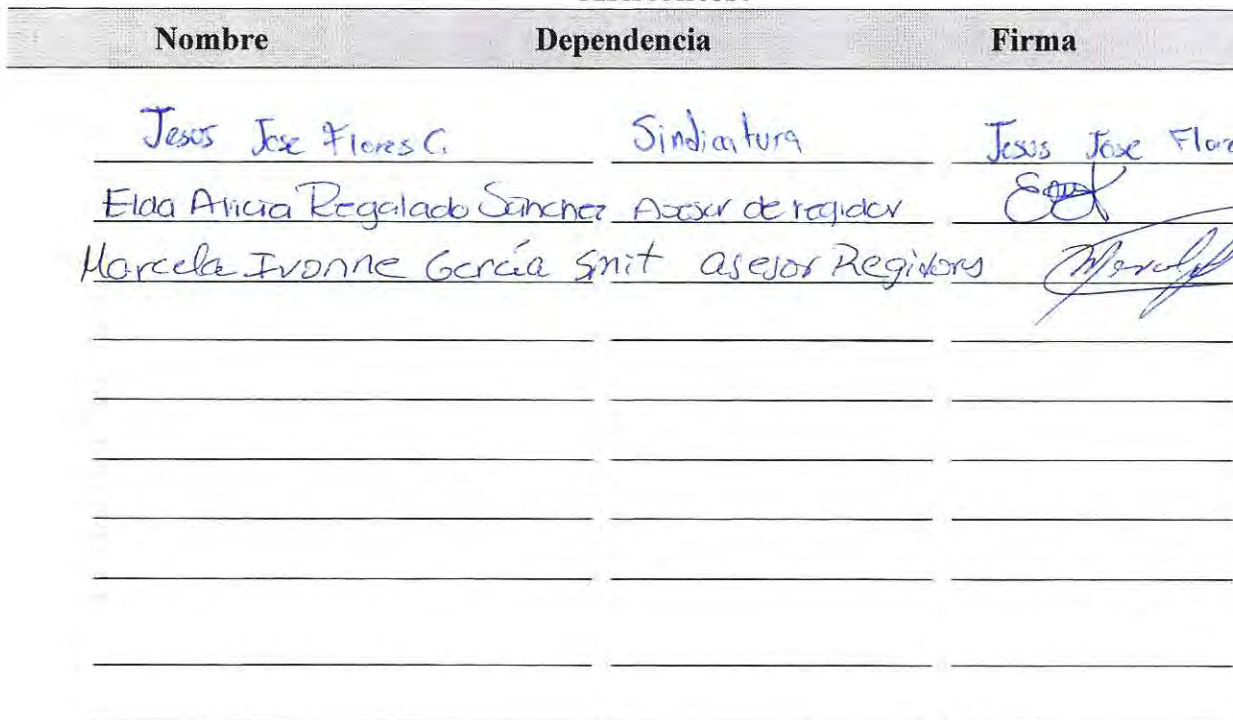 Nombre Dependencia Firma
Jesus Jose Flores C. Sindicatura Jesus Jose Flore
Elda Alicia Regalado Sanchez Asesor de regidor
Marcela Ivonne García Smit asesor Regidors